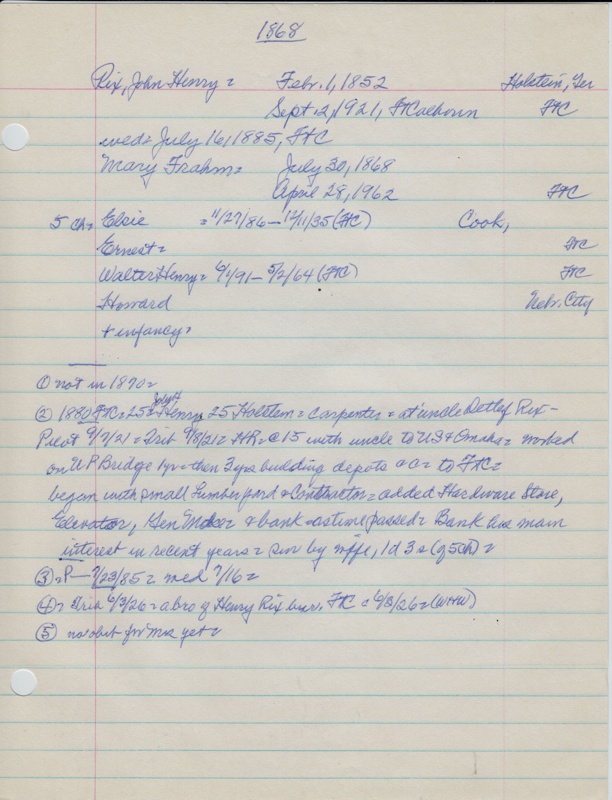 1868
Rix, John Henry = Febr. 1, 1852 Holstein, Ger
Sept. 2, 1921, FtCalhoun FtC
wed = July 16, 1885, FtC
Mary Frahm = July 30, 1868
April 28, 1962 FtC
5 ch = Elsie = 11/27/86 – 12/11/35 (FtC) Cook,
Ernest = FtC
Walter Henry = 6/1/91 – 5/2/64 (FtC) FtC
Howard Nebr. City
+ infancy =
① not in 1870 =
② 1880 FtC = 25 = Henry, 25 Holstein = carpenter = at uncle Detlef Rix –
Pilot 9/7/21 = Trib 9/8/21 = HR = @ 15 with uncle to US & Omaha = worked
on UP Bridge 1 yr = then 3 yrs building depots = to FtC =
began with small Lumber yard & Contractor = added Hardware Store,
Elevator, Gen Mdse & bank as time passed = Bank his main
interest in recent years = sur by wife, 1d 3s (of 5 ch) =
③ = P – 7/23/85 = med 7/16 =
④ = Trib 6/3/26 = a bro of Henry Rix bur. FtC = 6/3/26 = (WHW)
⑤ no obit for Mrs yet =